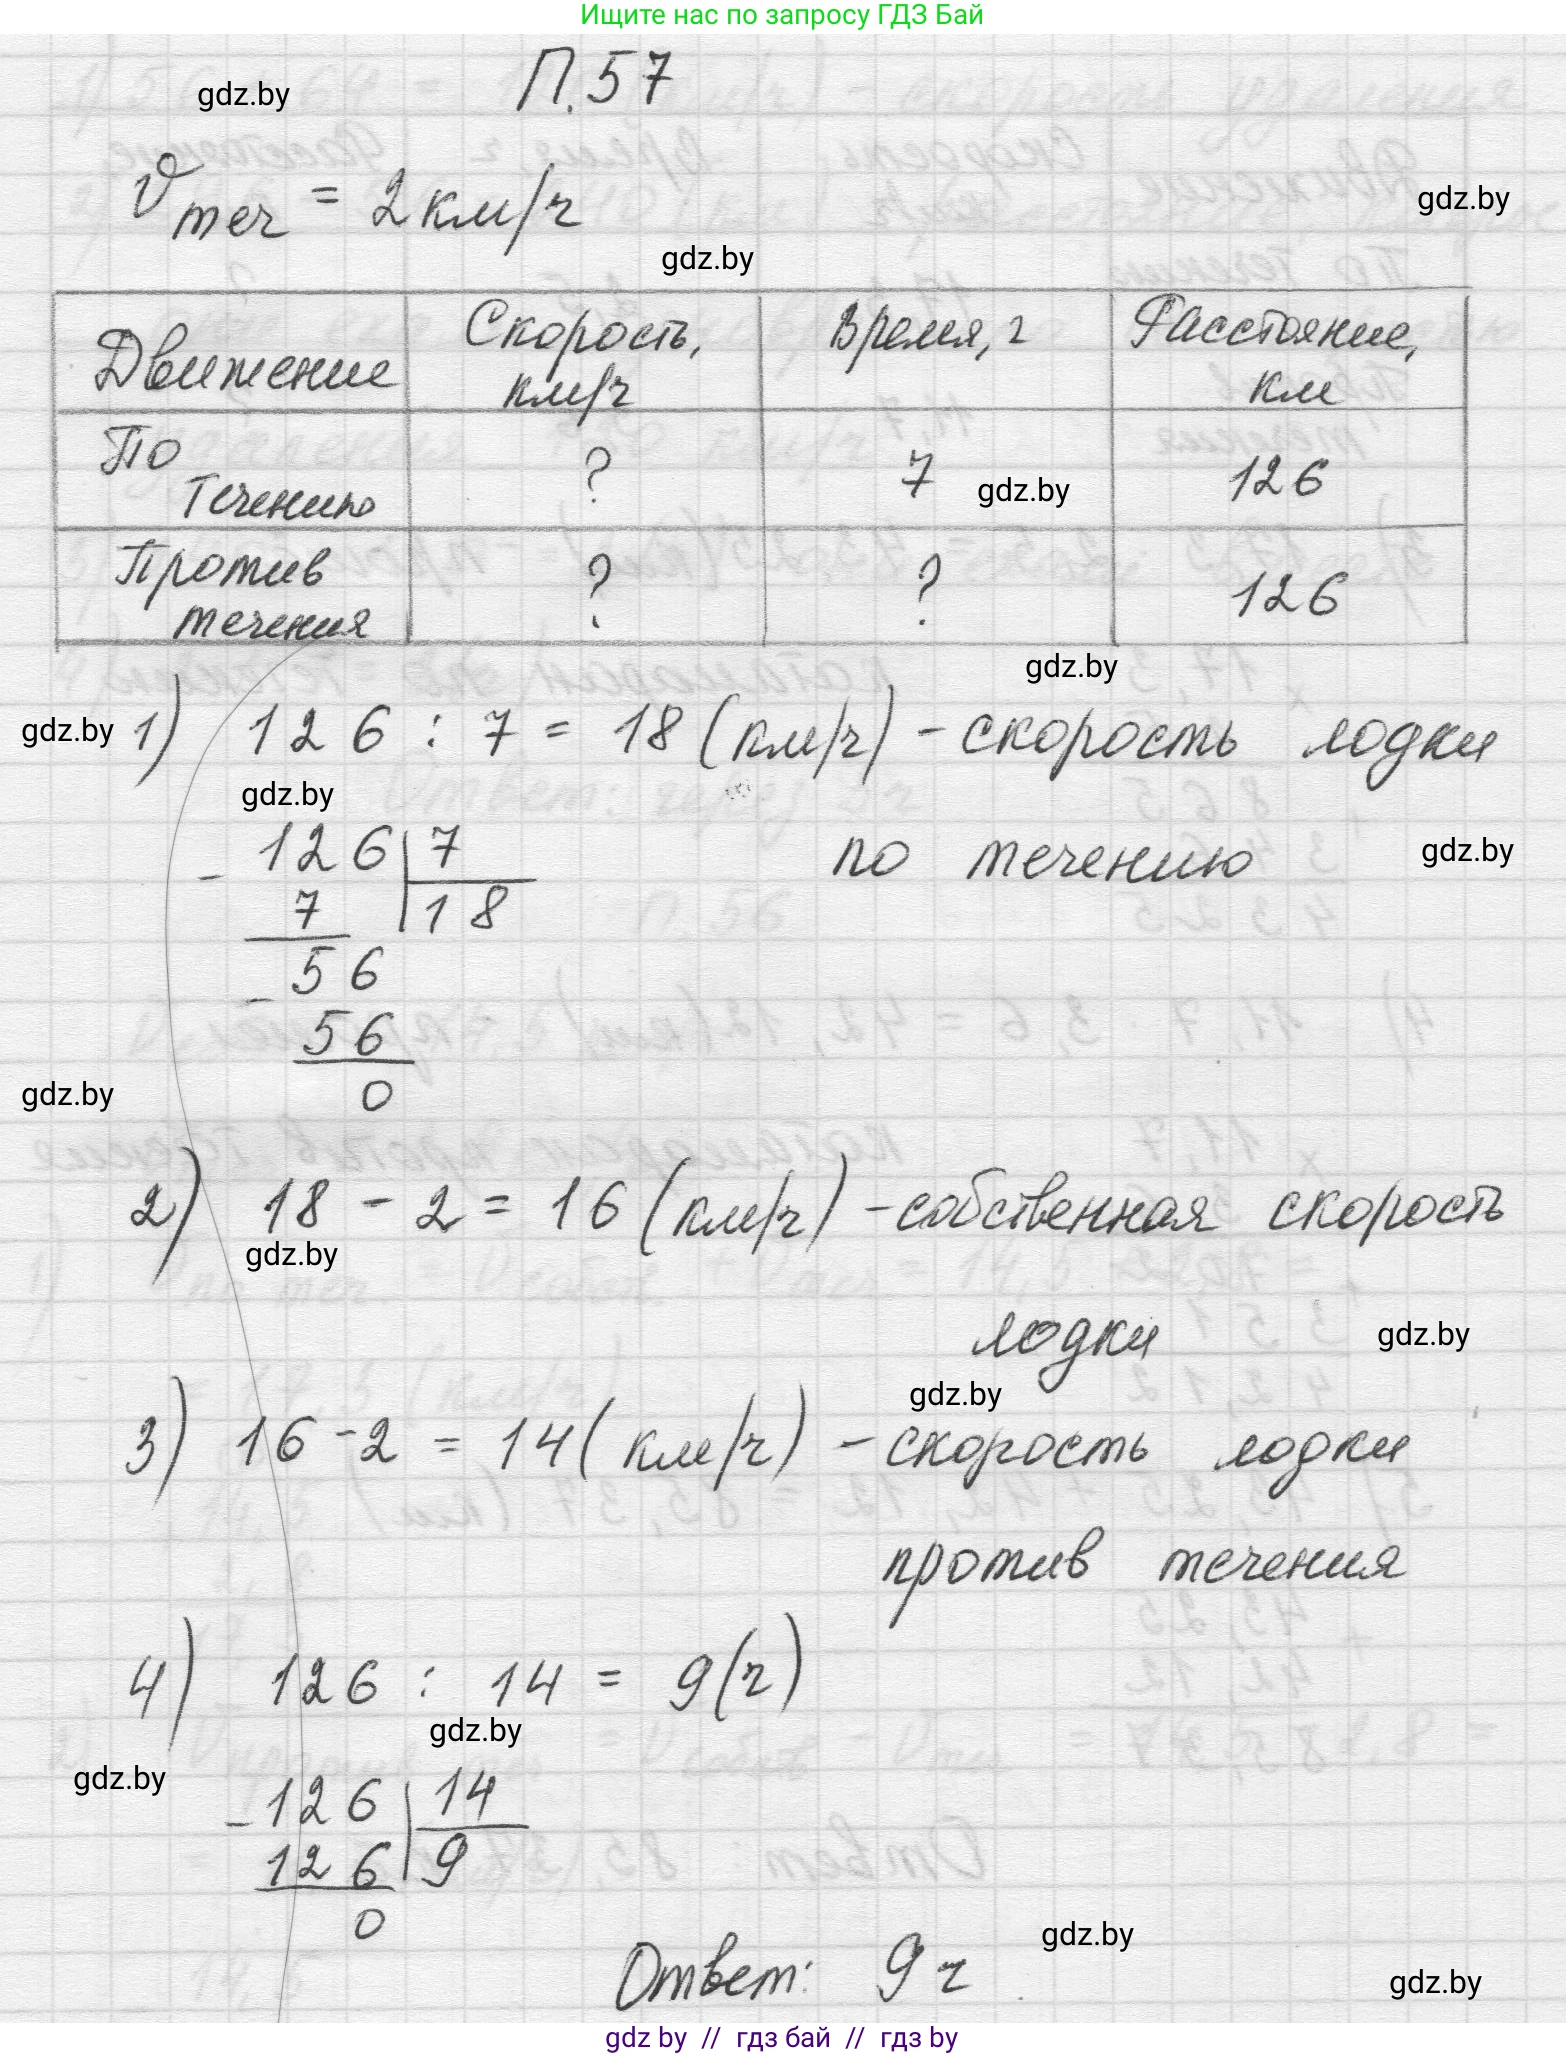 Ищите нас по запросу ГДЗ Бай
gdz.by
П.57
gdz.by
vтеч = 2 км/ч
gdz.by
Движение
Скорость, км/ч
Время, ч
Расстояние, км
По течению
?
7
gdz.by
126
Против течения
?
?
126
gdz.by
gdz.by
1) 126 : 7 = 18 (км/ч) - скорость лодки
gdz.by
по течению
gdz.by
- 126 | 7
7 | 18
- 56
56
0
gdz.by
2) 18 - 2 = 16 (км/ч) - собственная скорость
gdz.by
лодки
gdz.by
gdz.by
3) 16 - 2 = 14 (км/ч) - скорость лодки
против течения
4) 126 : 14 = 9 (ч)
gdz.by
gdz.by
- 126 | 14
126 | 9
0
gdz.by
Ответ: 9 ч
gdz.by
gdz by // гдз бай // гдз by